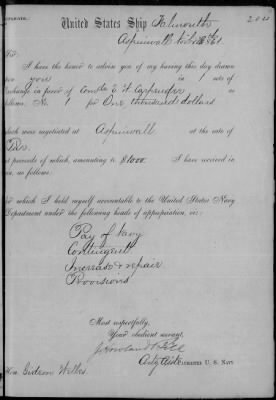 United States Ship Falmouth
Aspinwall
Sir:
I have the honor to advise you of my having this day drawn
you in 1 sets of
in favor of E. A. Carpenter as
No. 1 for One thousand dollars
were negotiated at Aspinwall at the rate of
Par.
proceeds of which, amounting to $1000 I have received in
as follows:
which I hold myself accountable to the United States Navy
Department under the following heads of appropriation, viz:
Pay of Navy
Contingent
Increase & repair
Provisions
Most respectfully,
Your obedient servant,
Paymaster U. S. Navy
Hon. Gideon Welles